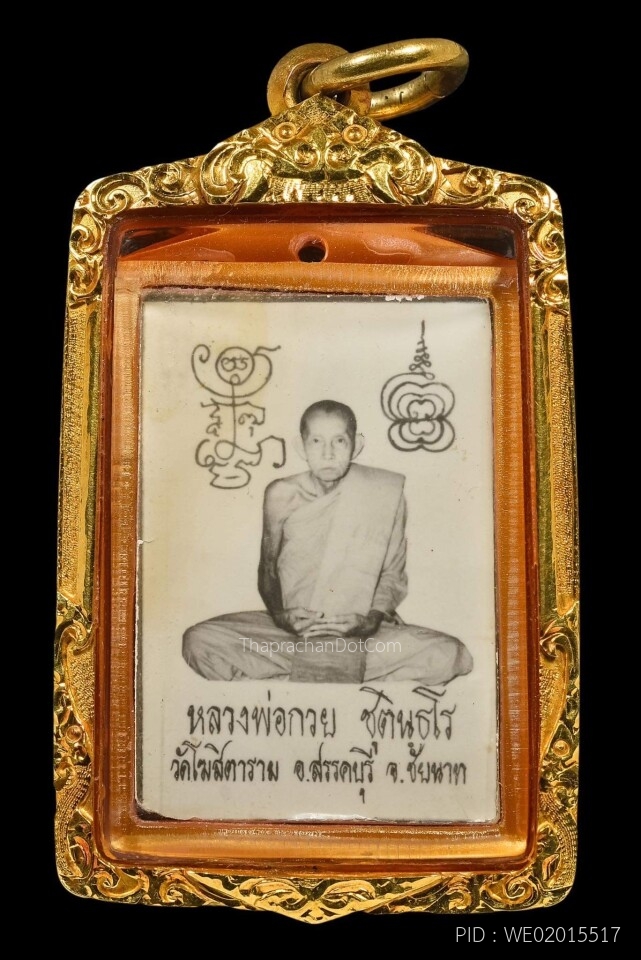 ThaprachanDotCom
หลวงพ่อกวย ชุตินฺธโร
วัดโฆสิตาราม อ.สรรคบุรี จ.ชัยนาท
PID : WE02015517